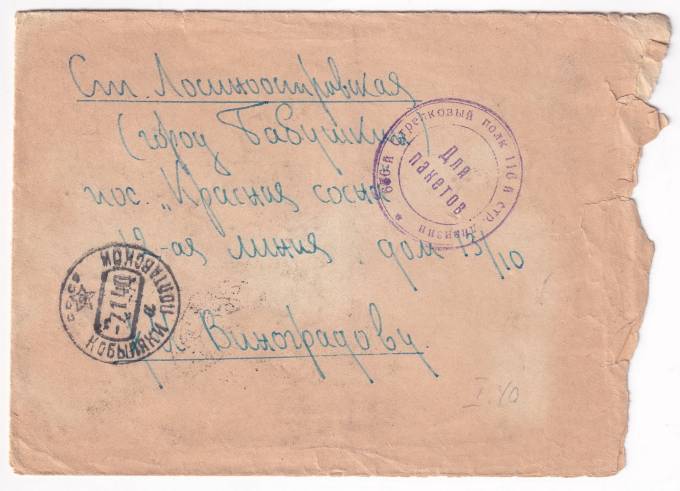 Ст. Лосиноостровская
(город Бабушкин)
пос. „Красная сосна"
19-ая линия дом 13/10
Виноградову.
стрелковый полк 116 й стр. дивизии
Для
пакетов
КОБЫЛЯКИ ПОЛТАВСКОЙ
СССР
-7.1.40
а
I.40